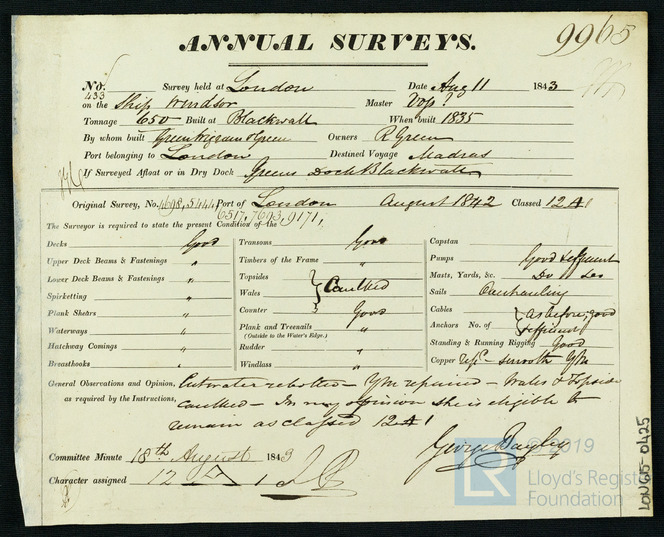 9965
ANNUAL SURVEYS.
No. 433 Survey held at London Date Aug 11 1843
on the Ship Windsor Master Voss?
Tonnage 650 Built at Blackwall When built 1835
By whom built Green Wigram & Green Owners R Green
Port belonging to London Destined Voyage Madras
If Surveyed Afloat or in Dry Dock Greens Dock Blackwall
Original Survey, No. 4698, 5444 Port of London August 1842 Classed 12 A 1
6517, 7693, 9171,
The Surveyor is required to state the present Condition of the
Decks Good
Upper Deck Beams & Fastenings "
Lower Deck Beams & Fastenings "
Spirketting "
Plank Shears "
Waterways "
Hatchway Comings "
Breasthooks "
Transoms Good
Timbers of the Frame "
Topsides
Wales } Caulked
Counter Good
Plank and Treenails "
(Outside to the Water's Edge.)
Rudder "
Windlass "
Capstan
Pumps Good & efficient
Masts, Yards, &c. Do Do
Sails Overhauling
Cables } as before, good
Anchors No. of & efficient
Standing & Running Rigging Good
Copper smooth
General Observations and Opinion, Cutwater rebolted - repaired - Wales & Topside
as required by the Instructions, caulked - In my opinion she is eligible to
remain as classed 12 A 1
George Bayley
Committee Minute 18th August 1843
Character assigned 12 A 1
© 2019
LR
Lloyd's Register
Foundation
LON665-0425